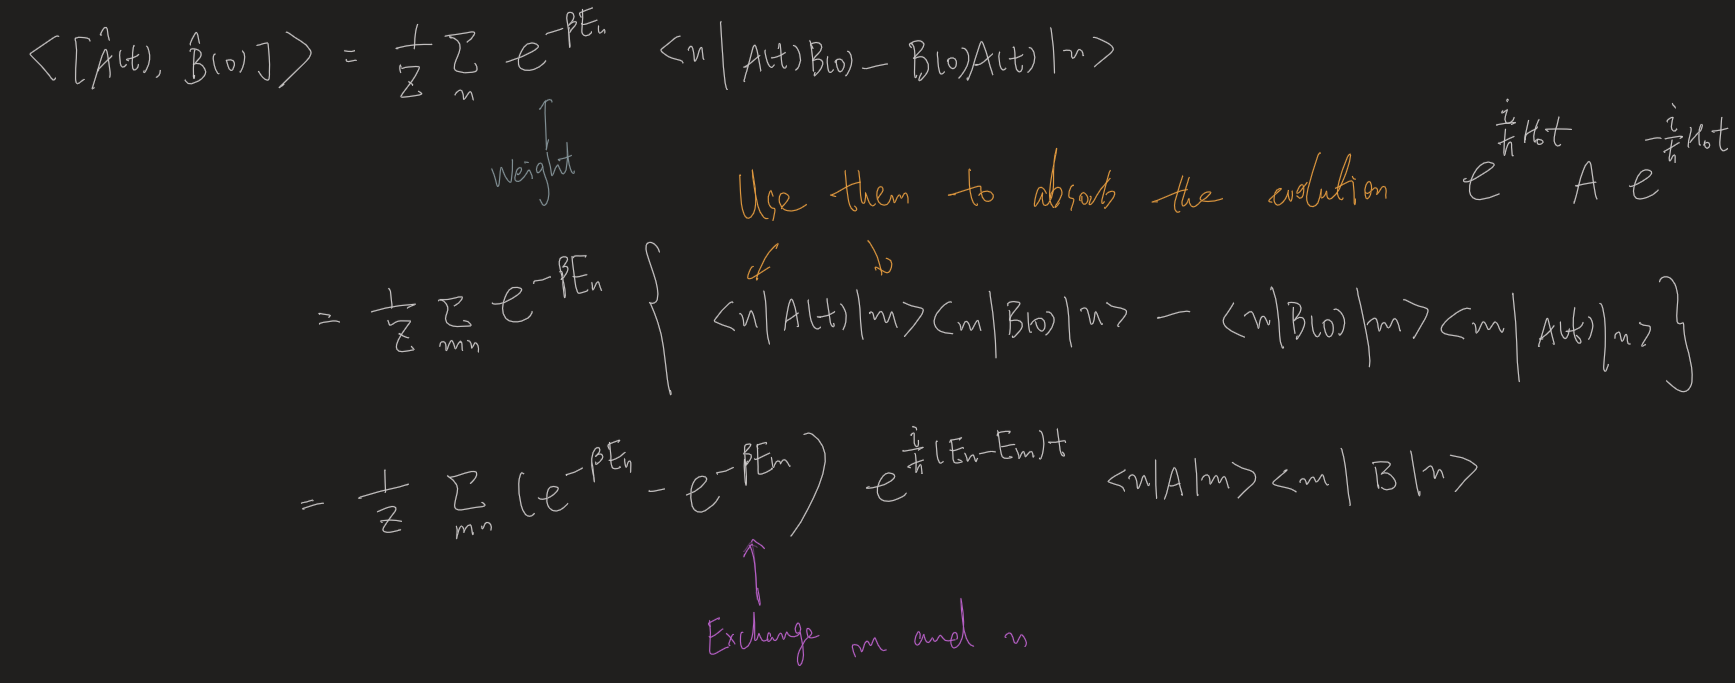 <[Â(t), B̂(0)]> = 1/Z Σ_n e^{-βE_n} <n| A(t)B(0) - B(0)A(t) |n>
Weight
Use them to absorb the evolution e^{i/ħ H₀t} A e^{-i/ħ H₀t}
= 1/Z Σ_{mn} e^{-βE_n} { <n|A(t)|m><m|B(0)|n> - <n|B(0)|m><m|A(t)|n> }
= 1/Z Σ_{mn} (e^{-βE_n} - e^{-βE_m}) e^{i/ħ (E_n-E_m)t} <n|A|m><m|B|n>
Exchange m and n